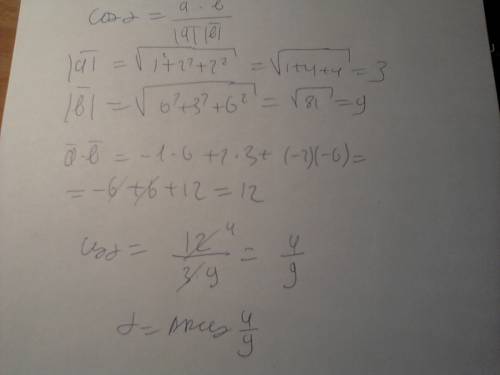 cos α = a · b / |a| |b|
|a̅| = √(1²+2²+2²) = √(1+4+4) = 3
|b̅| = √(6²+3²+6²) = √81 = 9
a̅·b̅ = -1·6 + 2·3 + (-2)(-6) =
= -6 + 6 + 12 = 12
cos α = 12 4 / 3·9 = 4/9
α = arccos 4/9